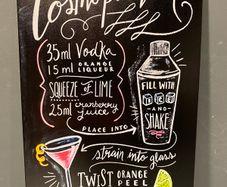 35ml Vodka
15ml ORANGE LIQUEUR
SQUEEZE OF LIME
25ml cranberry juice
PLACE INTO
FILL WITH
ICE
AND
SHAKE
strain into glass
TWIST ORANGE PEEL